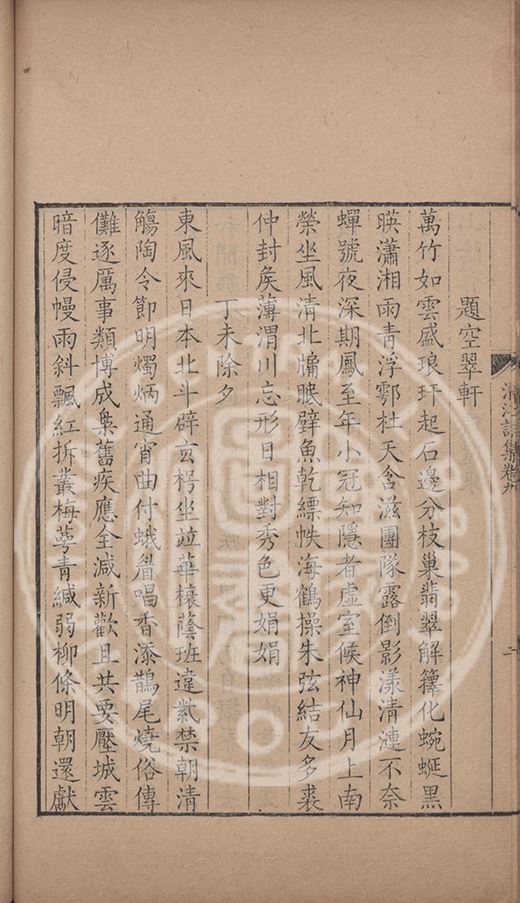 題空翠軒
萬竹如雲盛琅玕起石邊分枝巢翡翠解籜化蜿蜒黑
暎瀟湘雨青浮鄠杜天含滋團隊露倒影漾清漣不奈
蟬號夜深期鳳至年小冠知隱者虛室候神仙月上南
榮坐風清北牖眠辟魚乾縹帙海鶴操朱弦結友多裘
仲封矦薄渭川忘形日相對秀色更娟娟
丁未除夕
東風來日本北斗辟玄枵坐竝華榱蔭班違紫禁朝清
觴陶令節明燭炳通宵曲付蛾眉唱香添鵲尾燒俗傳
儺逐厲事類博成梟舊疾應全減新歡且共要壓城雲
暗度侵幔雨斜飄紅拆叢梅萼青緘弱柳條明朝還獻
清江詩集卷九